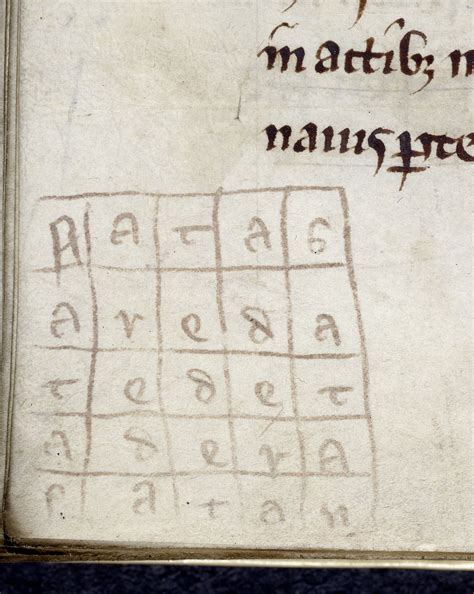 in actib3 n
nauis ꝑte
N A T A S
A r e d a
T e d e T
A d e r A
s a t a n